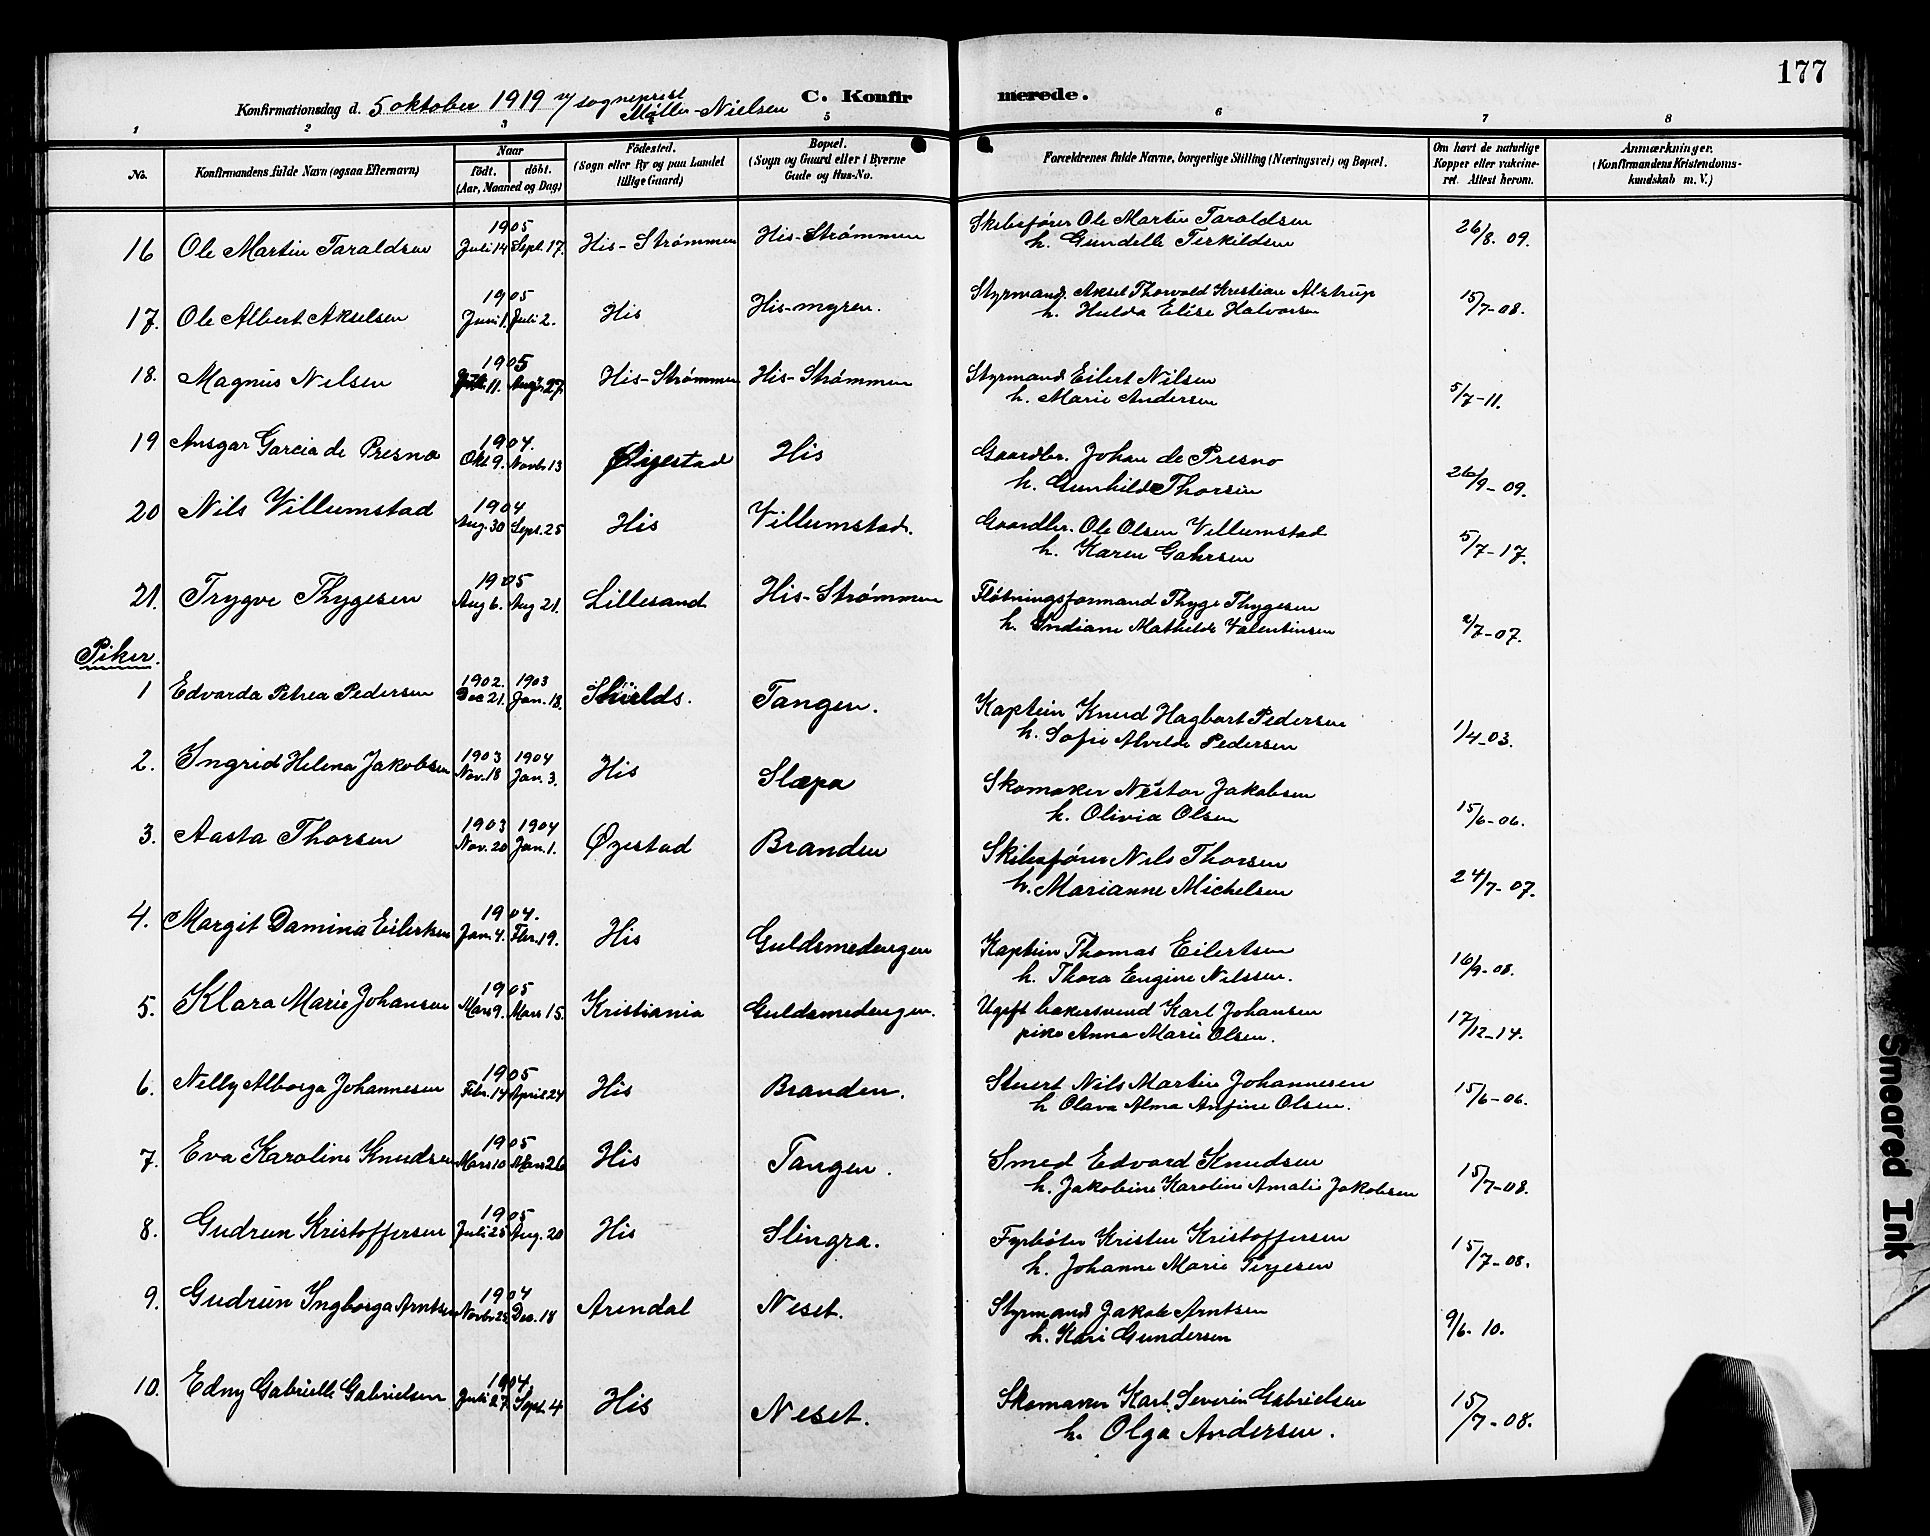 177
Konfirmationsdag d. 5 oktober 1919 v/ sogneprest Møller-Nielsen
C. Konfirmerede.
1 2 3 5 6 7 8
No.
Konfirmandens fulde Navn (ogsaa Efternavn)
Naar
födt. döbt.
(Aar, Maaned og Dag)
Födested.
(Sogn eller By og paa Landet tillige Gaard)
Bopæl.
(Sogn og Gaard eller i Byerne Gade og Hus-No.
Forældrenes fulde Navne, borgerlige Stilling (Næringsvei) og Bopæl.
Om havt de naturlige Kopper eller vaccineret. Attest herom.
Anmærkninger.
(Konfirmandens Kristendomskundskab m. V.)
16 Ole Martin Taraldsen 1905 Juli 14 Sept. 17. His-Strømmen His-Strømmen Skibsfører Ole Martin Taraldsen 26/8. 09.
h. Gundelle Terkildsen
17. Ole Albert Akselsen 1905 Juni 1. Juli 2. His His-myren. Styrmand. Aksel Thorvald Kristian Alstrup 15/7-08.
h. Hulda Elise Halvorsen
18. Magnus Nilsen 1905 11. Aug. 27. His-Strømmen His-Strømmen Styrmand Eilert Nilsen 5/7-11.
h. Marie Andersen
19 Ansgar Garcia de Presno 1904. Okt 9. Novbr 13 Øiestad His Gaardbr. Johan de Presno 26/9-09.
h. Gunhild Thorsen
20 Nils Villumstad 1904 Aug. 30 Sept. 25 His Villumstad. Gaardbr. Ole Olsen Villumstad 5/7-17.
h. Karen Gahrsen
21. Trygve Thygesen 1905 Aug 6. Aug 21. Lillesand His-Strømmen Fløtningsformand Thyge Thygesen 2/7-07.
h. Indiane Mathilde Valentinsen
Piker.
1 Edvarda Petrea Pedersen 1902. Dec 21. 1903 Jan. 18. Shields. Tangen. Kaptein Knud Hagbart Pedersen 1/4-03.
h. Sofie Alvilde Pedersen
2. Ingrid Helena Jakobsen 1903 Nov. 18 1904 Jan. 3. His Slæpa Skomaker Nestor Jakobsen 15/6-06.
h. Olivia Olsen
3. Aasta Thorsen 1903 Nov. 20 1904 Jan. 1. Øyestad Branden Skibsfører Nils Thorsen 24/7-07.
h. Marianne Michelsen
4. Margit Damina Eilertsen 1904. Jan. 4. Fbr. 19. His Guldsmedengen Kaptein Thomas Eilertsen 16/9-08.
h. Thora Engine Nilssen.
5. Klara Marie Johansen 1905 Mars 9. Mars 15. Kristiania Guldsmedengen. Ugift bakersvend Karl Johansen 17/12-14.
pike Anna Marie Olsen.
6. Nelly Alborga Johannesen 1905 Fbr. 14 April 24 His Branden. Stuert Nils Martin Johannesen 15/6-06.
h Olava Alma Anfine Olsen.
7. Eva Karoline Knudsen 1905 Mars 10 Mars 26 His Tangen. Smed Edvard Knudsen 15/7-08.
h. Jakobine Karoline Amalie Jakobsen
8. Gudrun Kristoffersen 1905 Juli 25 Aug. 20 His Slingra. Fyrbøter Kristen Kristoffersen 15/7-08.
h. Johanne Marie Terjesen
9. Gudrun Ingborga Arntsen 1904 Novbr 25 Des. 18 Arendal Neset. Styrmand Jakob Arntsen 9/6. 10.
h. Kari Gundersen
10. Edny Gabrielle Gabrielsen 1904. Juli 27. Sept. 4 His Neset. Skomaker Karl Severin Gabrielsen 15/7-08.
h. Olga Andersen.
Smeared Ink